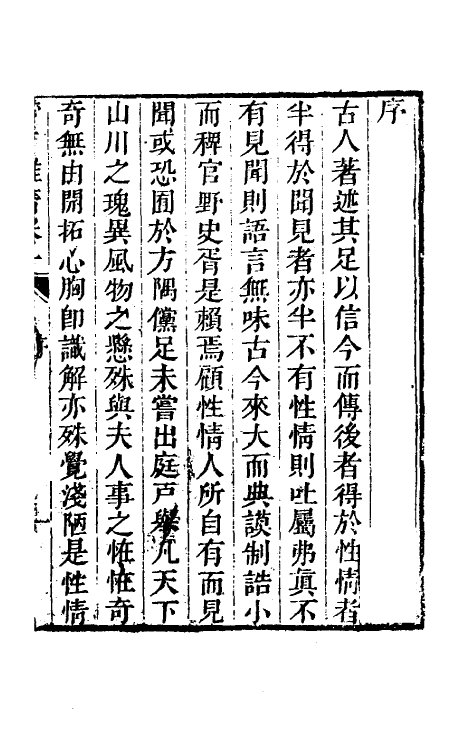 序
古人著述其足以信今而傳後者得於性情者
半得於聞見者亦半不有性情則吐屬弗眞不
有見聞則語言無味古今來大而典謨制誥小
而稗官野史胥是賴焉顧性情人所自有而見
聞或恐囿於方隅儻足未嘗出庭戸舉凡天下
山川之瑰異風物之懸殊與夫人事之恠恠奇
奇無由開拓心胸卽識解亦殊覺淺陋是性情